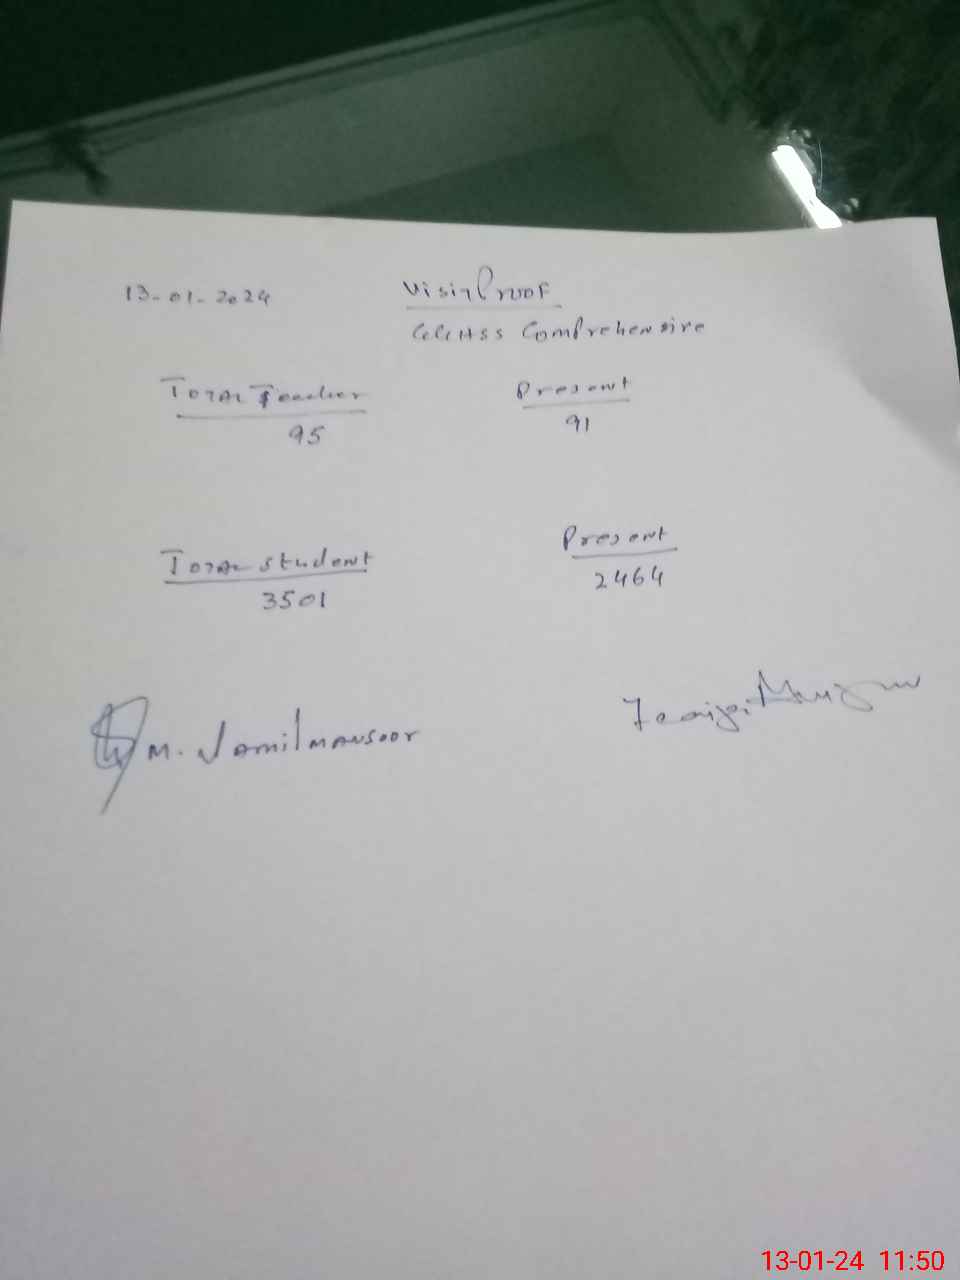 13-01-2024 Visit Proof
GGHSS Comprehensive
Total Teacher Present
95 91
Total Student Present
3501 2464
M. Jamil Mansoor
13-01-24 11:50